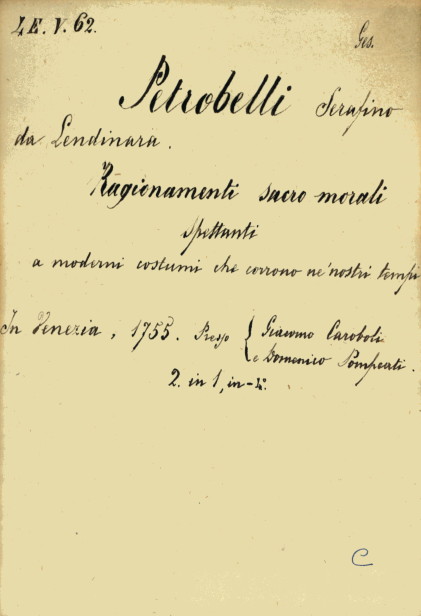 LE.V.62.
Ges.
Petrobelli Serafino
da Lendinara.
Ragionamenti sacro morali
spettanti
a moderni costumi che corrono ne' nostri tempi
In Venezia, 1755. Presso { Giacomo Caroboli
e Domenico Pompeati.
2. in 1, in-4°.
C